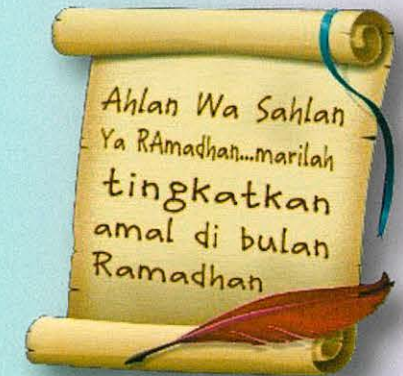 Ahlan Wa Sahlan
Ya RAmadhan...marilah
tingkatkan
amal di bulan
Ramadhan